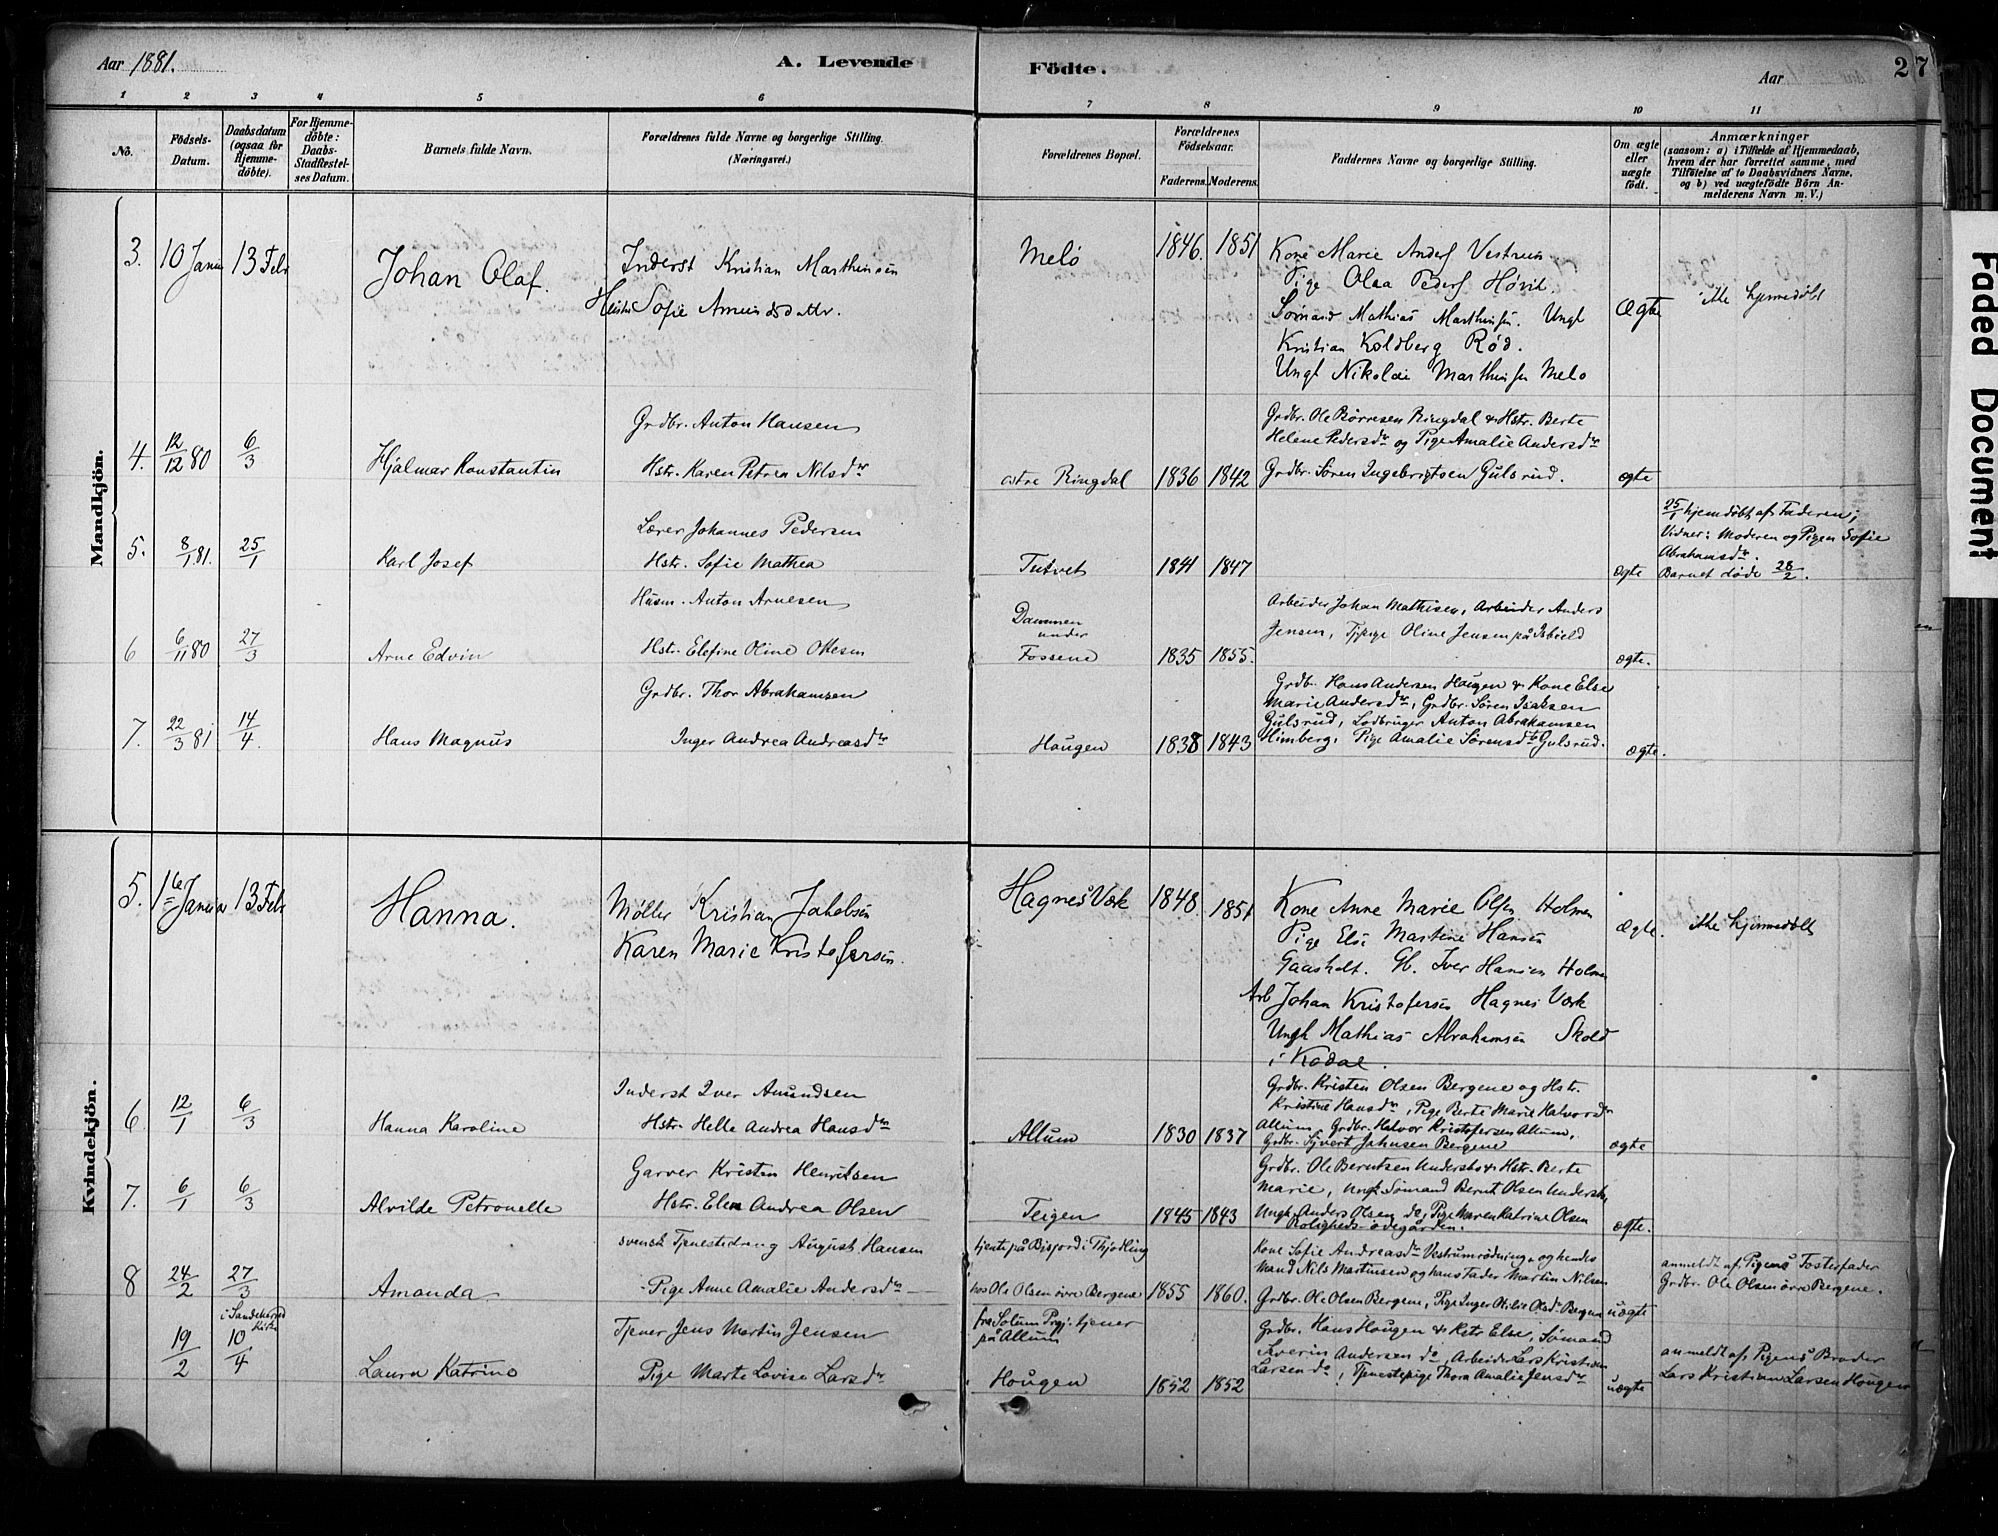 Aar 1881.
A. Levende Födte.
Aar
27
1 2 3 4 5 6 7 8 9 10 11
No.
Födsels-Datum.
Daabsdatum (ogsaa for Hjemmedöbte).
For Hjemmedöbte: Daabs-Stadfestelses Datum.
Barnets fulde Navn.
Forældrenes fulde Navne og borgerlige Stilling.
(Næringsvei.)
Forældrenes Bopæl.
Forældrenes Födselsaar.
Faderens. Moderens.
Faddernes Navne og borgerlige Stilling.
Om ægte eller uægte födt.
Anmærkninger
(saasom: a) i Tilfælde af Hjemmedaab,
hvem der har forrettet samme, med
Tilföielse af to Daabsvidners Navne,
og b) ved uægtefödte Börn Anmelderens Navn m. V.)
Mandkjön.
3. 10 Janu 13 Febr
Johan Olaf.
Inderst Kristian Marthinsen
Hustr Sofie Amundsdattr.
Melö
1846. 1851
Kone Marie Anders Vestrum
Pige Olea Peders Hövit
Sömand Mathias Marthins. Ungk
Kristian Koldberg Röd.
Ungk Nikolai Marthins Melo
Ægte
ikke hjemmedöbt
4. 12/12 80 6/3
Hjalmar Konstantin
Grdbr. Anton Hansen
Hstr. Karen Petrea Nilsdr
östre Ringdal
1836 1842
Grdbr. Ole Börresen Ringdal & Hstr. Berte
Helene Pedersdr og Pige Amalie Andersdr
Grdbr. Sören Ingebrigtsen Gulsrud.
ægte
5. 8/1 81. 25/1
Karl Josef
Lærer Johannes Pedersen
Hstr. Sofie Mathea
Tutvet
1841 1847
ægte
25/1 hjemdöbt af Faderen;
Vidner: Moderen og Pigen Sofie
Abrahamsdr.
Barnet döde 28/2.
6 6/11 80 27/3
Arne Edvin
Husm. Anton Arnesen
Hstr. Elefine Oline Ottesen
Dammen
under
Fossene
1835 1855.
Arbeider Johan Mathisen, Arbeider Anders
Jensen, Tjpige Oline Jensen på
ægte.
7. 22/3 81 14/4.
Hans Magnus
Grdbr. Thor Abrahamsen
Inger Andrea Andreasdr
Hougen
1838 1843
Grdb. Hans Andersen Hougen & Kone Else
Marie Andersdr, Grdbr. Sören Isaksen
Gulsrud, Lodbruger Anton Abrahamsen
Himberg, Pige Amalie Sörensdtr Gulsrud.
ægte.
Kvindekjön.
5. 1te Januar 13 Febr
Hanna.
Möller Kristian Jakobsen
Karen Marie Kristofersen.
Hagnes Værk
1848. 1851
Kone Anne Marie Olsen Holmen
Pige Else Martine Hansen
Gaasholt. Gb. Iver Hansen Holmen
Arb Johan Kristofersen Hagnes Værk
Ungk Mathias Abrahamsen Skold
i Kodal.
Ægte.
ikke hjemmedöbt
6. 12/1 6/3
Hanna Karoline
Inderst Iver Amundsen
Hstr. Helle Andrea Hansdr
Allum
1830 1837
Grdbr. Kristen Olsen Bergene og Hstr.
Kristine Hansdr, Pige Berte Marie Halvorsdr
Allum, Grdbr. Halvor Kristofersen Allum,
Grdbr. Sjvert Johnsen Bergene
ægte
7. 6/1 6/3
Alvilde Petronelle
Garver Kristen Henriksen
Hstr. Elen Andrea Olsen
Teigen
1845 1843
Grdbr. Ole Berntsen Undersbo & Hstr. Berte
Marie, Ungk. Sömand Bernt Olsen Undersbo,
Ungk. Anders Olsen do, Pige Maren Katrine Olsen
Roligheds-ödegården.
ægte.
8 24/2 27/3
i Sandeherred
Kirke
Amanda
svensk Tjenestedreng August Hansen
Pige Anne Amalie Andersdr
tjente på Bisjord i Thjodling
hos Ole Olsen övre Bergene
1855 1860.
Kone Sofie Andreasdr Vestrumrödningen og hendes
Mand Nils Martinsen og hans Fader Martin Nilsen
Grdbr. Ole Olsen Bergene, Pige Inger Otilie Olsdr Bergene
uægte
anmeldt af Pigens Fosterfader
Grdbr. Ole Olsen övre Bergene.
19/2 10/4
Laura Katrine
Tjener Jens Martin Jensen
Pige Marte Lovise Larsdr
fra Solum Prgj. tjener
på Allum
Hougen
1852 1852
Grdbr. Hans Hougen & Kstr Else, Sömand
Sverin Andersen do, Arbeider Lars Kristian
Larsen do, Tjenestepige Thora Amalie Jensdr
uægte
anmeldt af Pigens Broder
Lars Kristian Larsen Hougen
Faded Document